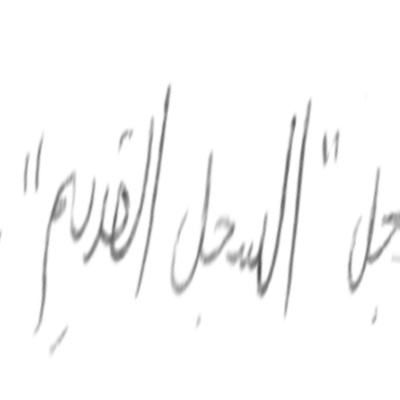 "السجل القديم"